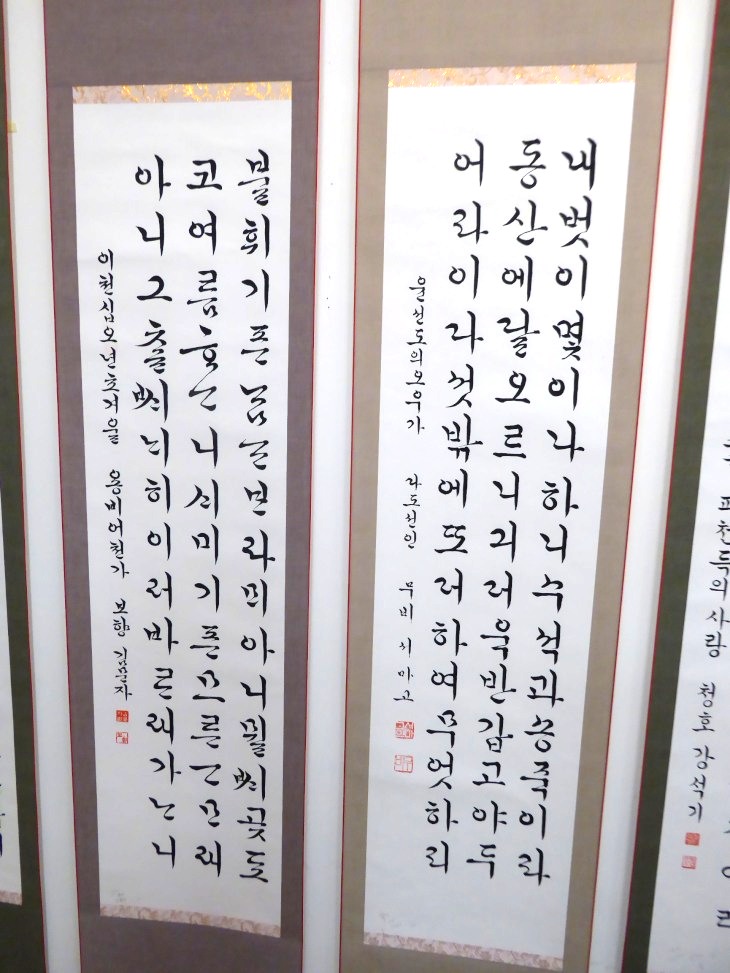 피천득의사랑 청호 강석기
내벗이몇이나하니수석과송죽이라
동산에달오르니긔더욱반갑고야두
어라이다섯밖에또더하여무엇하리
윤선도의오우가
불휘기픈남ᄀᆞᆫᄇᆞᄅᆞ매아니뮐ᄊᆡ곶됴
코여름하ᄂᆞ니ᄉᆡ미기픈므른ᄀᆞᄆᆞ래
아니그츨ᄊᆡ내히이러바ᄅᆞ래가ᄂᆞ니
이천십오년초겨울 용비어천가 보향 김문자